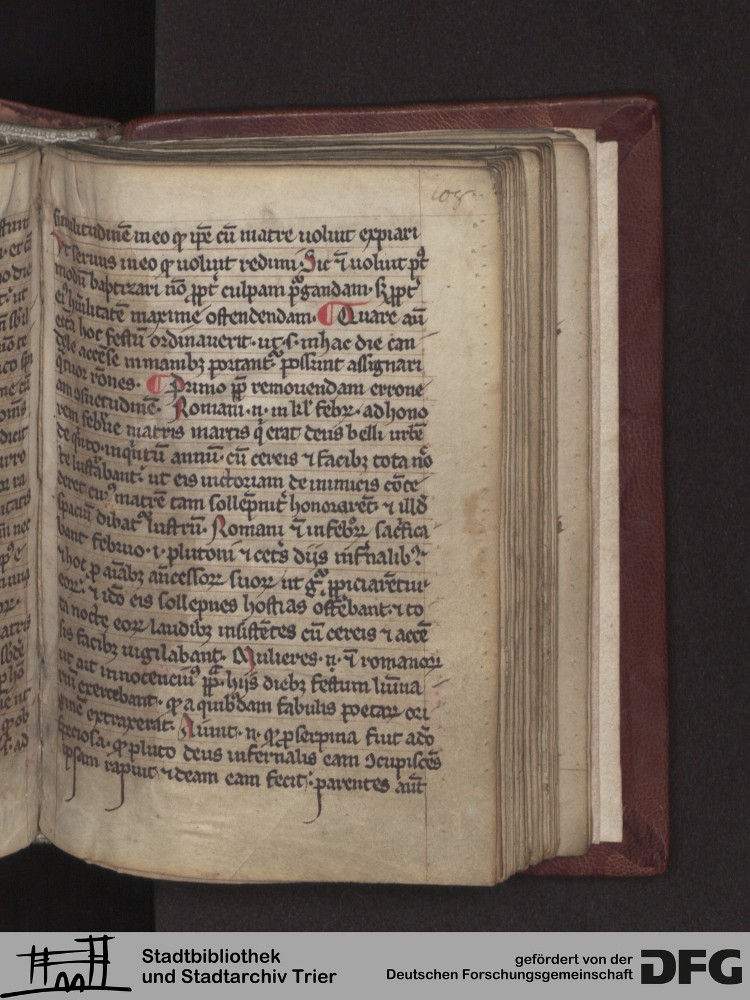 108
similitudinē in eo ꝙ ip̄e cū matre uoluit expiari
ut seruus in eo ꝙ uoluit redimi. Sic ⁊ uoluit pꝰt
modū baptizari nō ꝓpt̉ culpam pͥgandam. sꝫ ꝓpt̉
eiꝰ hūilitatē maxime ostendendam. ¶ Quare aū
eccīa hoc festū ordinauerit. ut .s. in hac die can
dele accēse in manibꝫ portant̉ possunt assignari
q̄tuor rōnes. ¶ Primo ꝓp̄ remouendam errone
am ꝯsuetudinē. Romani .n. in kl̄ febr̄. ad hono
rem februe matris martis q̄ erat deus belli urbē
de qͥnto in qͥntū annū. cū cereis ⁊ facibꝫ tota nō
te lustͣbant. ut eis uictoriam de inimicis cōce
deret cuiꝰ matrē tam sollēpnit̉ honorarēt. ⁊ illd̄
spaciū dibat̉ lustrū. Romani ⁊ in febrꝛ sac̄fica
bant februo .i. plutoni ⁊ cet̄s dijs inf̄nalibꝰ.
⁊ hoc p̄ aīabꝫ an̄cessoꝝ suoꝝ ut gͦ ꝓpiciarētur
eoꝝ. ⁊ iđo eis sollepnes hostias offēbant. ⁊ to
ta nocte eoꝝ laudibꝫ insistētes cū cereis ⁊ accē
sis facibꝫ uigilabant. Mulieres .n. ⁊ romanoꝝ
ut ait innocenciꝰ pp̄. hijs diebꝫ festum luīna
riū exercebant. ꝙ a quibꝰdam fabulis poetaꝝ ori
ginē extraxerat. Aiunt .n. ꝙ ꝓserpina fuit adō
speciosa. ꝙ pluto deus infernalis eam ꝯcupiscēs
ipsam rapuit ⁊ deam eam fecit. parentes aūt
Stadtbibliothek
und Stadtarchiv Trier
gefördert von der
Deutschen Forschungsgemeinschaft
DFG